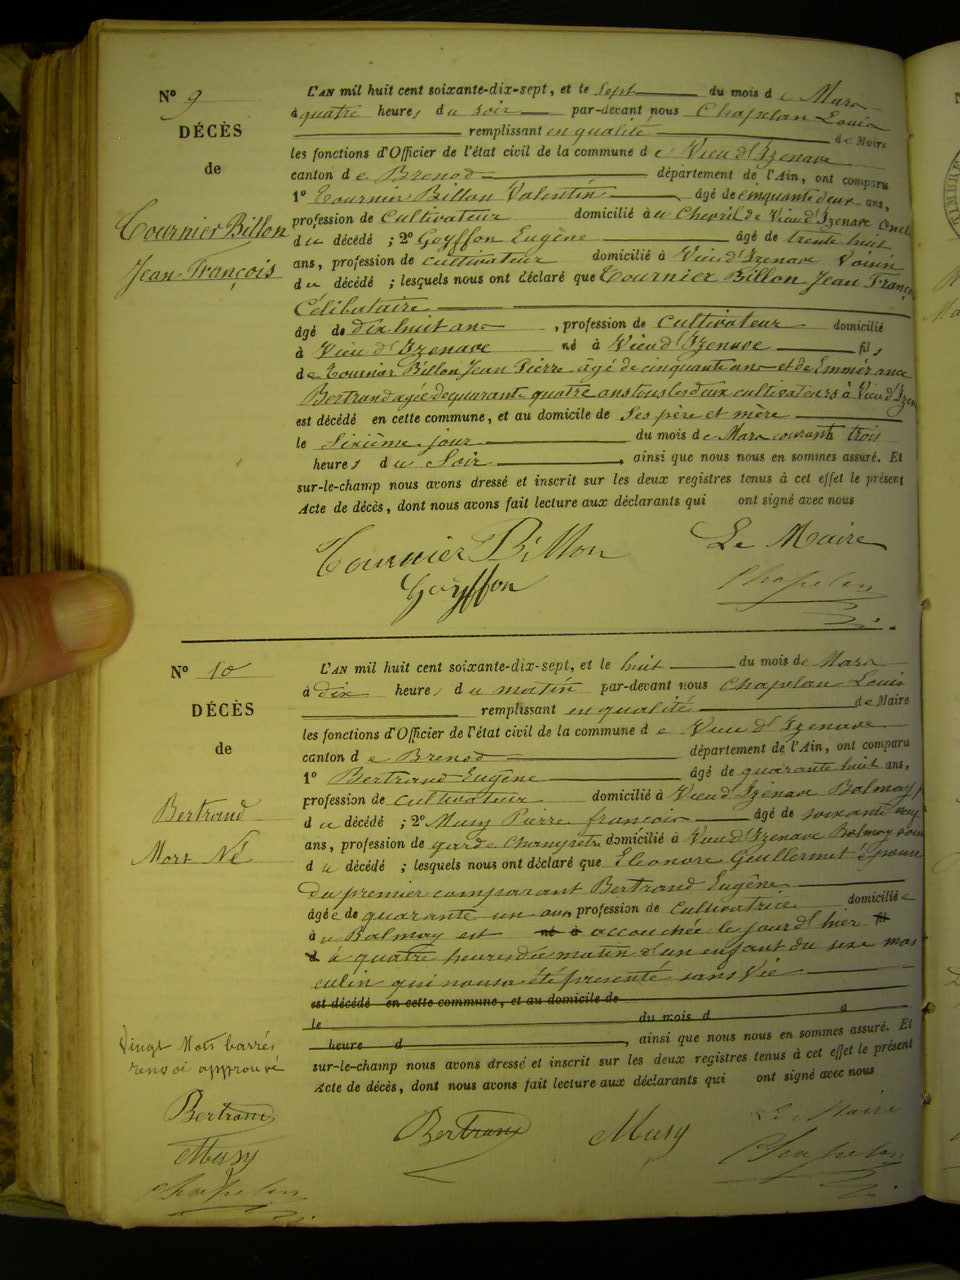 N° 9
DÉCÈS
de
Tournier Billon
Jean François
L'AN mil huit cent soixante-dix-sept, et le Sept du mois de Mars
à quatre heures du soir par-devant nous Chapelan Louis
remplissant en qualité de Maire
les fonctions d'Officier de l'état civil de la commune de Vieu d'Izenave
canton de Brenod département de l'Ain, ont comparu
1° Tournier Billon Valentin âgé de cinquante deux ans,
profession de Cultivateur domicilié à u Chevril de Vieu d'Izenave Oncle
du décédé ; 2° Goyffon Eugène âgé de trente huit
ans, profession de cultivateur domicilié à Vieu d'Izenave Voisin
du décédé ; lesquels nous ont déclaré que Tournier Billon Jean François
Célibataire
âgé de dix huit ans , profession de Cultivateur domicilié
à Vieu d'Izenave né à Vieu d'Izenave fils
de Tournier Billon Jean Pierre âgé de cinquante ans et de Emmérance
Bertrand agée de quarante quatre ans tous les deux cultivateurs à Vieu d'Izen
est décédé en cette commune, et au domicile de Ses père et mère
le Sixième jour du mois de Mars courant trois
heures du Soir , ainsi que nous nous en sommes assuré. Et
sur-le-champ nous avons dressé et inscrit sur les deux registres tenus à cet effet le présent
Acte de décès, dont nous avons fait lecture aux déclarants qui ont signé avec nous
Tournier Billon Le Maire
Goyffon Chapelan
N° 10
DÉCÈS
de
Bertrand
Mort Né
L'AN mil huit cent soixante-dix-sept, et le huit du mois de Mars
à dix heures du matin par-devant nous Chapelan Louis
remplissant en qualité de Maire
les fonctions d'Officier de l'état civil de la commune de Vieu d'Izenave
canton de Brenod département de l'Ain, ont comparu
1° Bertrand Eugène âgé de quarante huit ans,
profession de cultivateur domicilié à Vieu d'Izenave Balmay
du décédé ; 2° Musy Pierre françois âgé de soixante neuf
ans, profession de garde champetre domicilié à Vieu d'Izenave Balmay
du décédé ; lesquels nous ont déclaré que Eléonore Guillermet épouse
du premier comparant Bertrand Eugêne
âgée de quarante un ans profession de Cultivatrice domiciliée
à u Balmay est né à accouchée le jour d'hier fil
d à quatre heures du matin d'un enfant du sexe mas
culin qui nous a été présenté sans Vie
est décédé en cette commune, et au domicile de
le du mois d à
heure d , ainsi que nous nous en sommes assuré. Et
sur-le-champ nous avons dressé et inscrit sur les deux registres tenus à cet effet le présent
Acte de décès, dont nous avons fait lecture aux déclarants qui ont signé avec nous
Vingt Mots barrés
renvoi approuvé
Bertrand
Musy
Chapelan
Bertrand Musy Le Maire
Chapelan